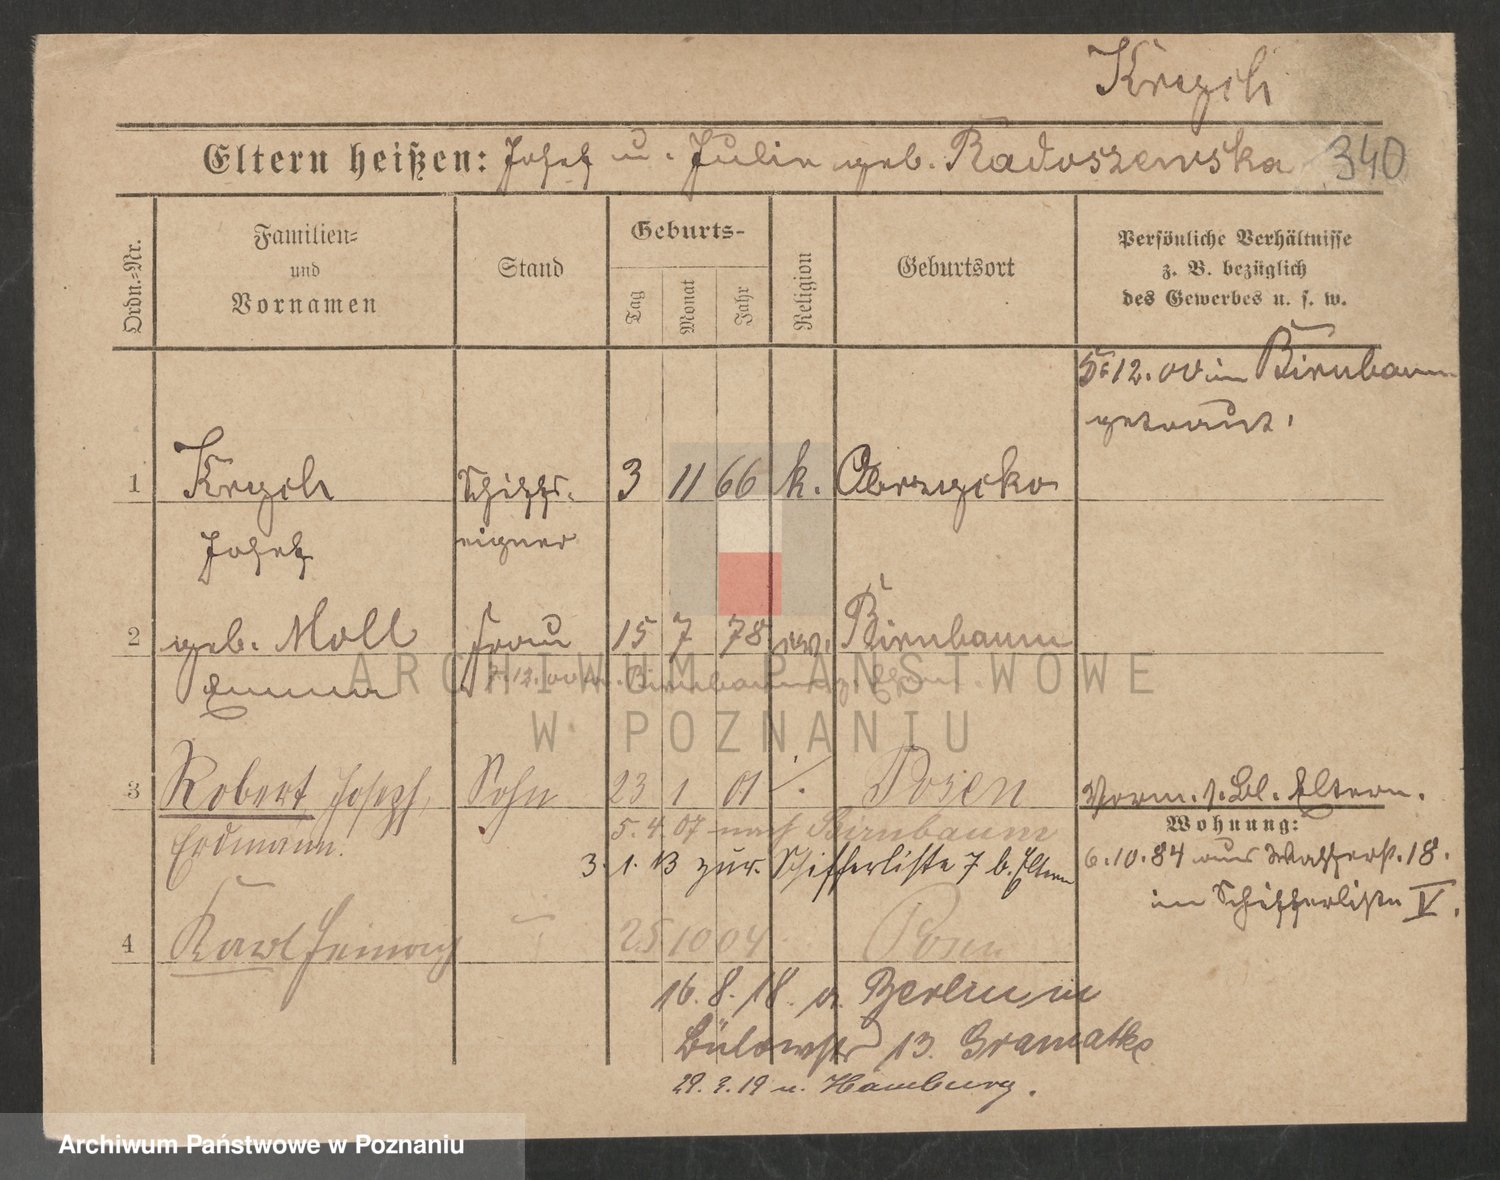 Krzych
Eltern heißen: Josef u. Julie geb. Radoszewska 340
Ordn.=Nr.
Familien=
und
Vornamen
Stand
Geburts-
Tag
Monat
Jahr
Religion
Geburtsort
Persönliche Verhältnisse
z. B. bezüglich
des Gewerbes u. s. w.
12.00 in Birnbaum
getraut.
1 Krzych Schiffs- 3 11 66 k. Obrzycko
Josef eigner
2 geb. Moll Frau 15 7 78 ev. Birnbaum
Emma
12.00 Birnbaum
3 Robert Joseph Sohn 23 1 01 Posen
Erdmann.
5.4.07 nach Birnbaum
3.1.13 zur. Schifferliste 7 b. Eltern
Vorm. s. Bl. Eltern.
Wohnung:
6.10.84 aus Wasserst. 18.
in Schifferliste V.
4 Karl Heinrich 25 10 04 Posen
16.8.18. a. Berlin in
Bülowstr 13. Gramatke
29. 19 n. Hamburg.
ARCHIWUM PAŃSTWOWE
W POZNANIU
Archiwum Państwowe w Poznaniu